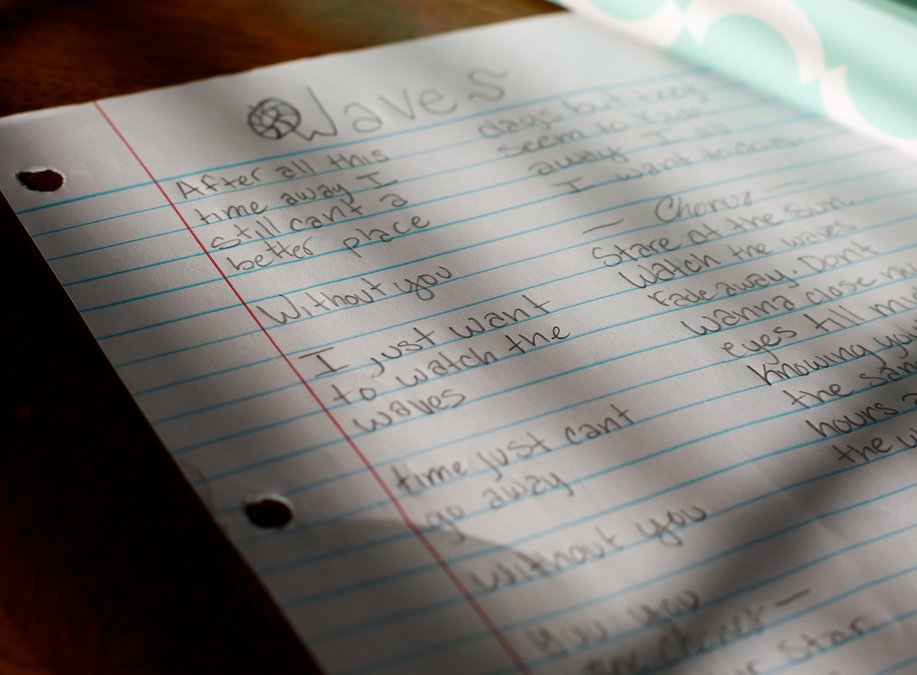 Waves
After all this
time away I
Still can't a
better place
Without you
I just want
to watch the
waves
time just cant
go away
without you
You you
days but they
seem to fade
away I all
I want
— Chorus —
Stare at the Sun.
Watch the waves
Fade away. Dont
wanna close my
eyes till
knowing
the
hours
the